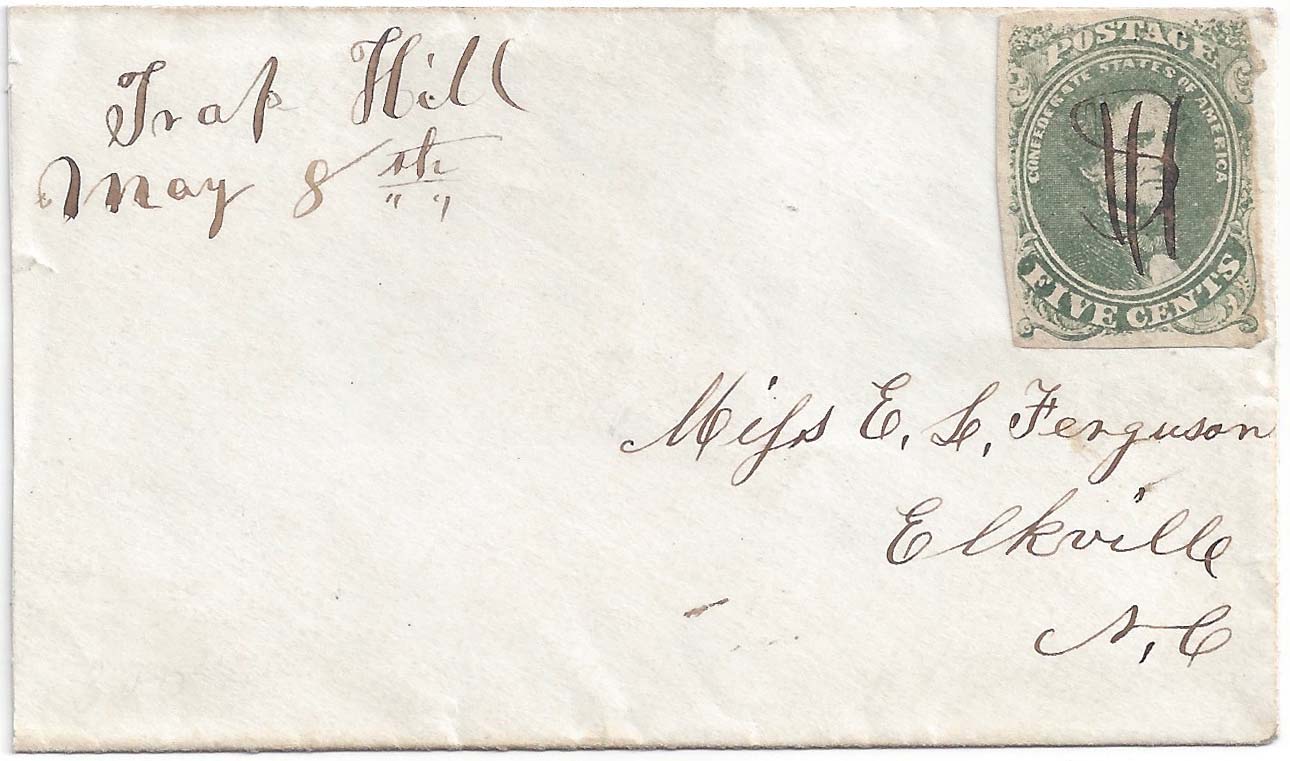 Trap Hill
May 8th
POSTAGE
CONFEDERATE STATES OF AMERICA
FIVE CENTS
Miss E. L. Ferguson
Elkville
N, C